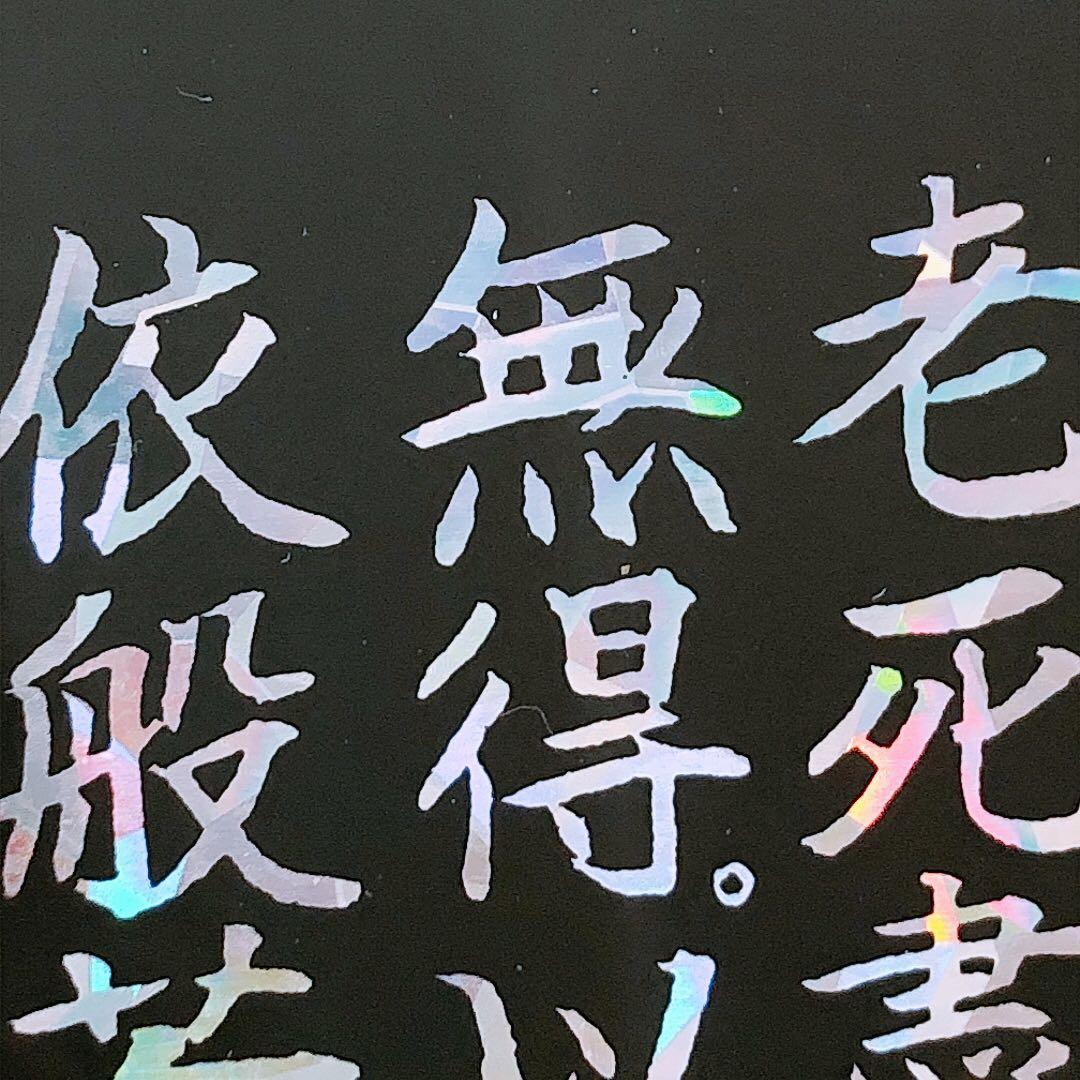 老死盡
無得。以
依般若